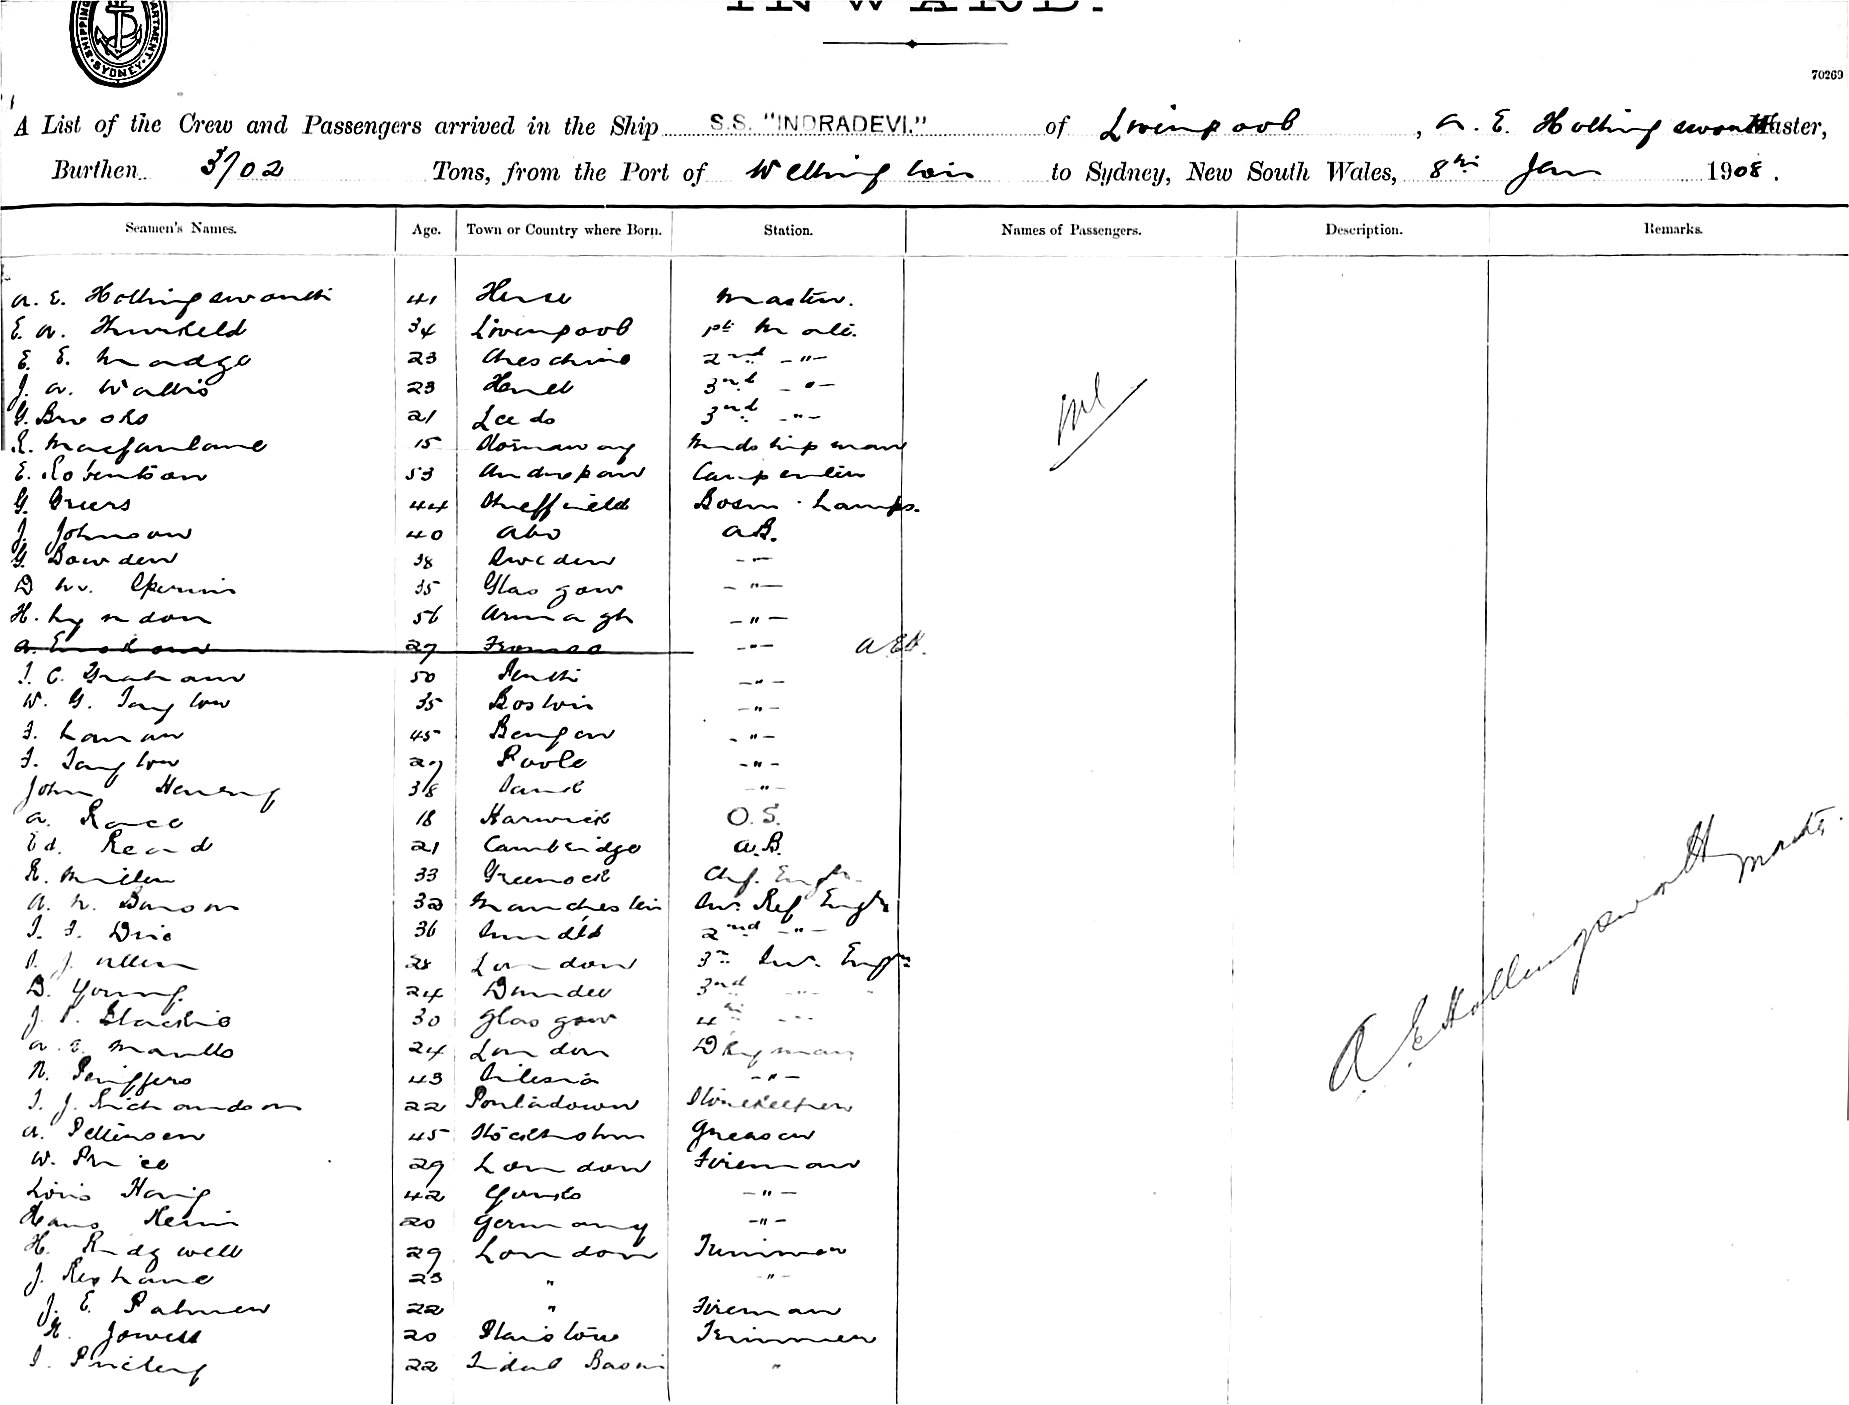 INWARD.
SHIPPING DEPARTMENT SYDNEY
70269
A List of the Crew and Passengers arrived in the Ship S.S. "INDRADEVI." of Liverpool, A. E. Hollingsworth Master,
Burthen 3702 Tons, from the Port of Wellington to Sydney, New South Wales, 8th Jan 1908.
Seamen's Names. Age. Town or Country where Born. Station. Names of Passengers. Description. Remarks.
A. E. Hollingsworth 41 Master.
E. A. Threlkeld 34 Liverpool 1st Mate.
E. E. Madge 23 Cheshire 2nd -"-
J. A. Wallis 23 3rd -"-
G. Brooks 21 Leeds 3rd -"-
R. Macfarlane 15 Stornaway Midshipman
nil
E. Robertson 53 Carpenter
G. Greers 44 Sheffield Bosn. Lamps.
J. Johnson 40 Abo A.B.
G. Bowden 38 Sweden -"-
D 35 Glasgow -"-
H. Lyndon 56 Armagh -"-
27 -"- AEH.
J. C. Graham 50 Perth -"-
W. G. Taylor 35 Boston -"-
F. Laman 45 -"-
F. Taylor 27 Poole -"-
John Henery 38 -"-
A. Race 18 Harwick O.S.
Ed. Read 21 Cambridge A.B.
R. Miller 33 Greenock Chf. Engr.
A. W. 32 Manchester Ref Engr
36 2nd -"-
J. Allen 28 London 3rd Engr
D. Young 24 Dundee 3rd -"-
J. P. Blackie 30 Glasgow 4th -"-
24 London Dkyman
N. 43 Silesia -"-
T. J. Richardson 22 Portadown Storekeeper
A. Pettersen 45 Stockholm Greaser
W. Price 29 London Fireman
42 -"-
Hans 20 Germany -"-
H. Ridgwell 29 London Trimmer
J. 23 " -"-
J. E. Palmer 22 " Fireman
R. Jowett 20 Plaistow Trimmer
22 Tidal Basin "
A E Hollingsworth Master.